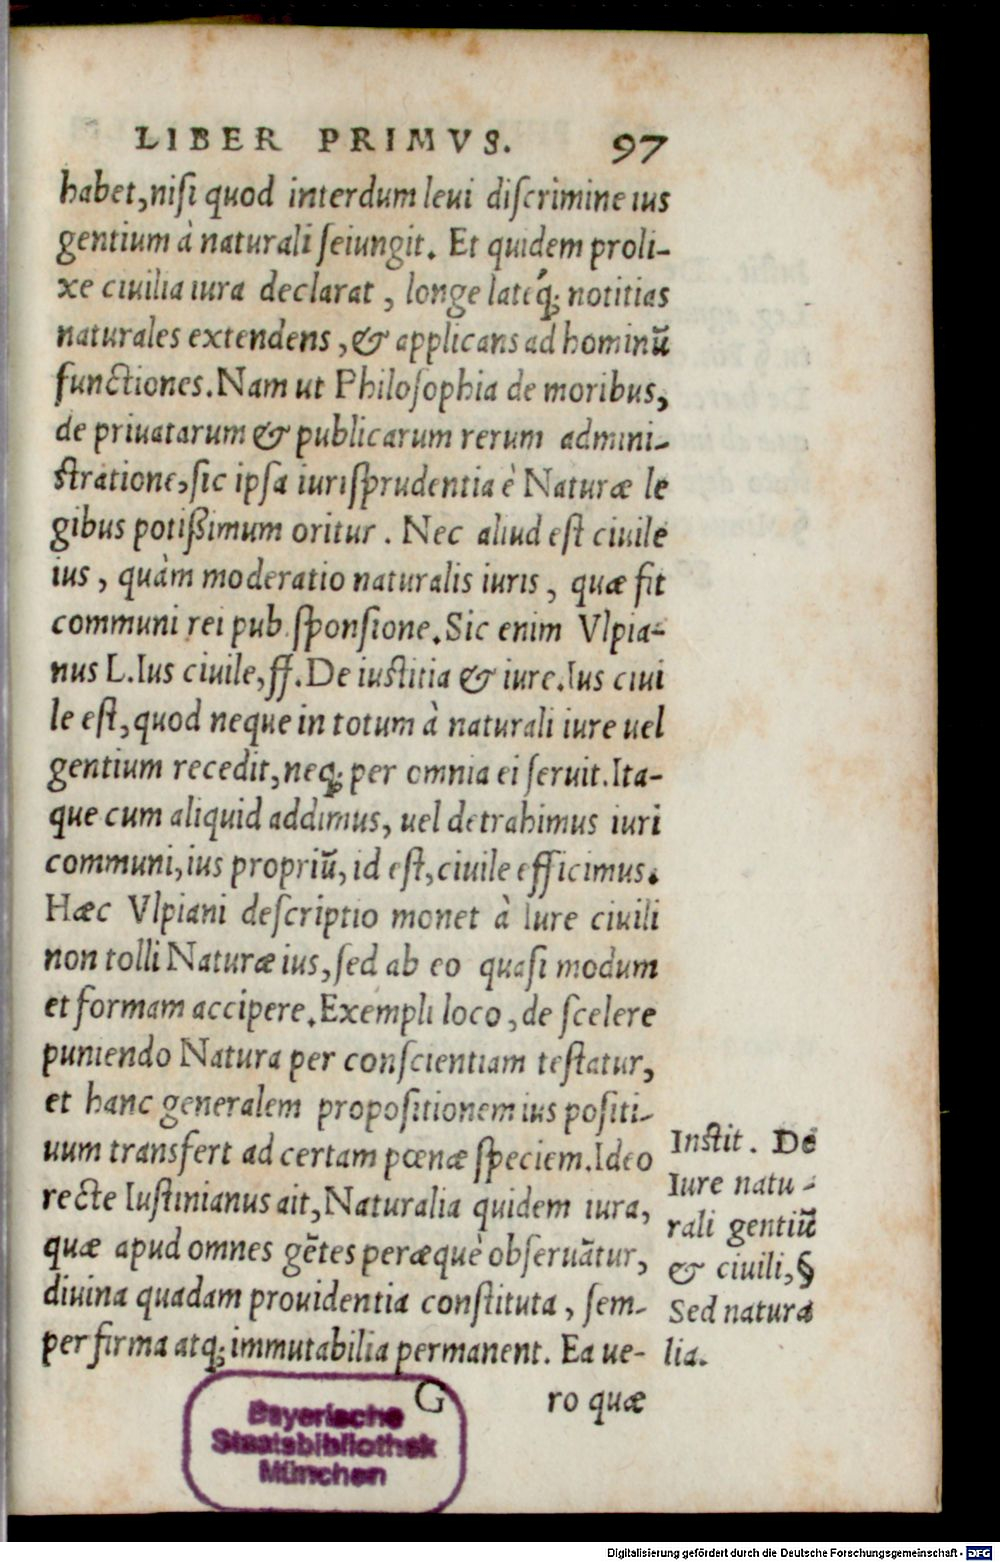 LIBER PRIMVS. 97
habet, niſi quod interdum leui diſcrimine ius
gentium à naturali ſeiungit. Et quidem proli-
xe ciuilia iura declarat, longe latéq; notitias
naturales extendens, & applicans ad hominū
functiones. Nam ut Philoſophia de moribus,
de priuatarum & publicarum rerum admini-
ſtratione, ſic ipſa iuriſprudentia è Naturæ le
gibus potißimum oritur. Nec aliud eſt ciuile
ius, quàm moderatio naturalis iuris, quæ fit
communi rei pub. ſponſione. Sic enim Vlpia-
nus L. Ius ciuile, ff. De iuſtitia & iure. Ius ciui
le eſt, quod neque in totum à naturali iure uel
gentium recedit, neq; per omnia ei ſeruit. Ita-
que cum aliquid addimus, uel detrahimus iuri
communi, ius propriū, id eſt, ciuile efficimus.
Hæc Vlpiani deſcriptio monet à Iure ciuili
non tolli Naturæ ius, ſed ab eo quaſi modum
et formam accipere. Exempli loco, de ſcelere
puniendo Natura per conſcientiam teſtatur,
et hanc generalem propoſitionem ius poſiti-
uum transfert ad certam pœnæ ſpeciem. Ideo
recte Iuſtinianus ait, Naturalia quidem iura,
quæ apud omnes gētes peræquè obſeruātur,
diuina quadam prouidentia conſtituta, ſem-
per firma atq; immutabilia permanent. Ea ue-
G ro quæ
Inſtit. De
Iure natu-
rali gentiū
& ciuili, §
Sed natura
lia.
Bayerische
Staatsbibliothek
München
Digitalisierung gefördert durch die Deutsche Forschungsgemeinschaft - DFG